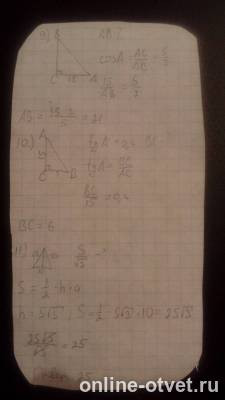 9) AB-?
cosA = AC/AB = 5/7
15/AB = 5/7
AB = 15·7/5 = 21
10.) tgA = 0,4 BC-?
tgA = BC/AC
BC/15 = 0,4
BC = 6
11)
S = 1/2 · h·a
h = 5√3; S = 1/2 · 5√3 · 10 = 25√3
25√3/√3 = 25
25
online-otvet.ru